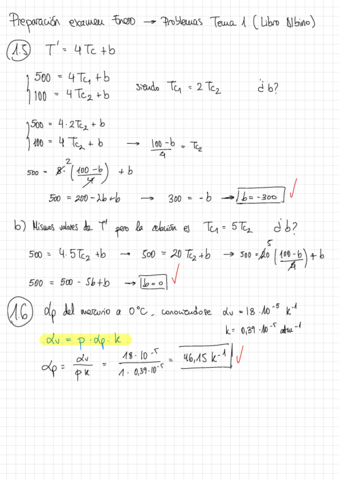 Preparación examen Enero → Problemas Tema 1 (Libro Albino)
1.5 T' = 4Tc + b
500 = 4Tc₁ + b
100 = 4Tc₂ + b
siendo Tc₁ = 2Tc₂ ¿b?
500 = 4·2Tc₂ + b
100 = 4Tc₂ + b → (100-b)/4 = Tc₂
500 = 8·2((100-b)/4) + b
500 = 200 - 2b + b → 300 = -b → b = -300 ✓
b) Mismos valores de T' pero la relación es Tc₁ = 5Tc₂ ¿b?
500 = 4·5Tc₂ + b → 500 = 20Tc₂ + b → 500 = 20 5((100-b)/4) + b
500 = 500 - 5b + b → b = 0 ✓
1.6 αp del mercurio a 0°C, conociéndose αv = 18·10⁻⁵ k⁻¹
k = 0,39·10⁻⁵ atm⁻¹
αv = p·αp·k
αp = αv/pk = 18·10⁻⁵/1·0,39·10⁻⁵ = 46,15 k⁻¹ ✓